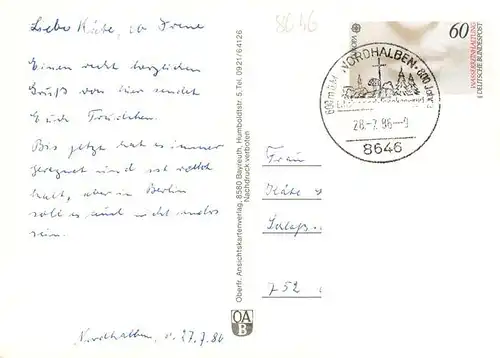 Liebe Käte, Irene
Einen recht herzlichen
Gruß von hier sendet
Euch Trudchen.
Bis jetzt hat es immer
geregnet und ist
kalt, aber in Berlin
soll es auch nicht anders
sein.
Nordhalben, 27.7.86
Oberfr. Ansichtskartenverlag, 8580 Bayreuth, Humboldtstr. 5, Tel. 0921/64126
Nachdruck verboten
OA
B
8646
EUROPA
60
WASSERREINHALTUNG
DEUTSCHE BUNDESPOST
600 m ü.M. NORDHALBEN 800 Jahre
28.-7.86-9
8646
Frau
Käte
752